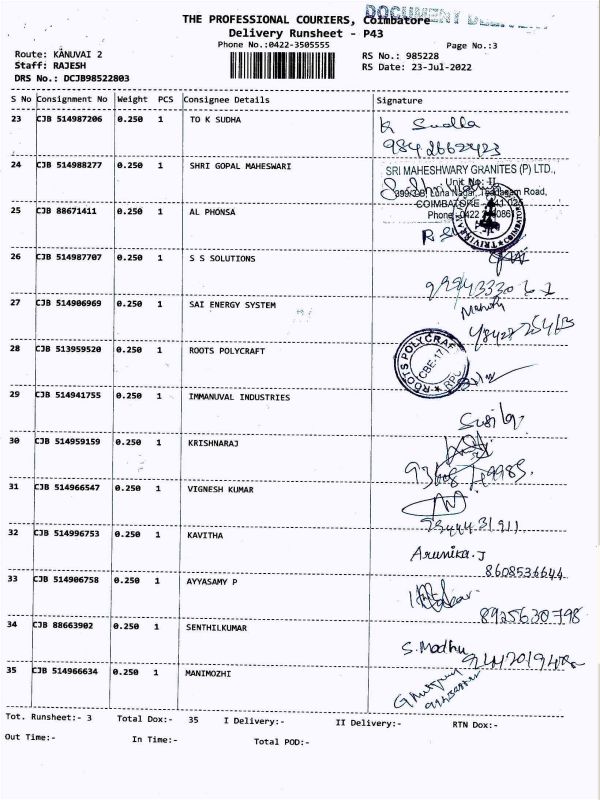 DOCUMENT
THE PROFESSIONAL COURIERS, Coimbatore
Delivery Runsheet - P43
Phone No.:0422-3505555
Page No.:3
Route: KANUVAI 2
RS No.: 985228
Staff: RAJESH
RS Date: 23-Jul-2022
DRS No.: DCJB98522803
S No Consignment No Weight PCS Consignee Details Signature
23 CJB 514987206 0.250 1 TO K SUDHA K Sudha
9842662423
24 CJB 514988277 0.250 1 SHRI GOPAL MAHESWARI SRI MAHESHWARY GRANITES (P) LTD.,
Unit No: II
Road,
COIMBATORE
Phone
25 CJB 88671411 0.250 1 AL PHONSA
26 CJB 514987707 0.250 1 S S SOLUTIONS
27 CJB 514906969 0.250 1 SAI ENERGY SYSTEM
28 CJB 513959520 0.250 1 ROOTS POLYCRAFT ROOTS POLYCRAFT
CBE-17
RPC
29 CJB 514941755 0.250 1 IMMANUVAL INDUSTRIES
30 CJB 514959159 0.250 1 KRISHNARAJ
31 CJB 514966547 0.250 1 VIGNESH KUMAR
32 CJB 514996753 0.250 1 KAVITHA Arunika.J
8608536644
33 CJB 514906758 0.250 1 AYYASAMY P
8925630798
34 CJB 88663902 0.250 1 SENTHILKUMAR S. Madhu
35 CJB 514966634 0.250 1 MANIMOZHI
Tot. Runsheet:- 3 Total Dox:- 35 I Delivery:- II Delivery:- RTN Dox:-
Out Time:- In Time:- Total POD:-